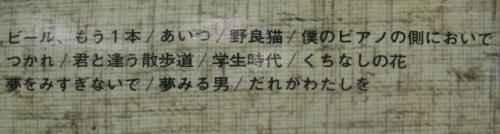 ビール、もう1本/あいつ/野良猫/僕のピアノの側においで
つかれ/君と逢う散歩道/学生時代/くちなしの花
夢をみすぎないで/夢みる男/だれがわたしを